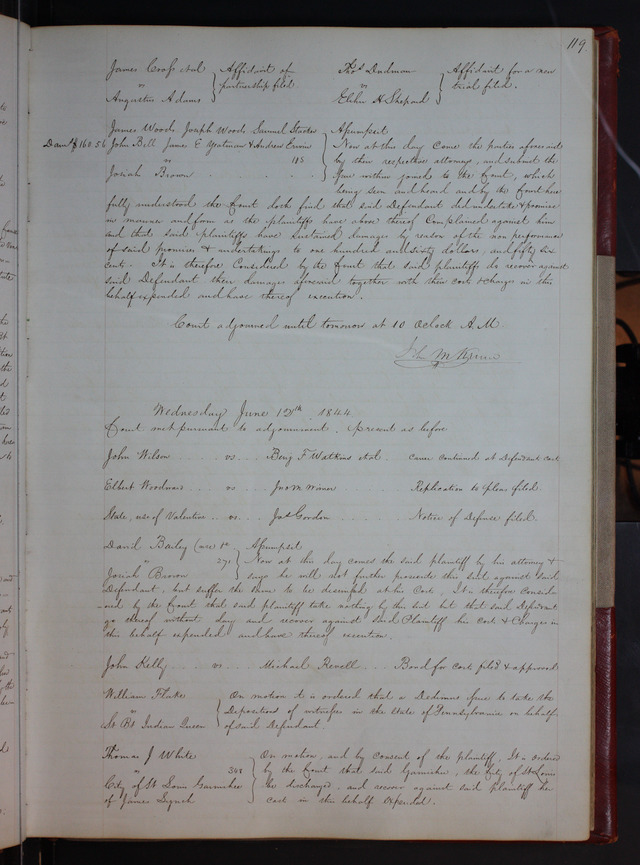 119
James Cook et al } Affidavit of
vs partnership filed
Augustus Adams
Thos Dudmon } Affidavit for a new
vs trial filed.
Elihu H Shepard
James Woods Joseph Woods Samuel } Assumpsit
Dam $160.56 John Bell James E Yeatman & Andrew Ervin Now at this day come the parties aforesaid
vs 115 by their respective attorneys, and submit the
Josiah Brown Issue within joined to the Court, which
being seen and heard and by the Court here
fully understood the Court doth find that said Defendant did undertake & promise
in manner and form as the plaintiffs have above thereof Complained against him
and that said plaintiffs have sustained damages by reason of the non performance
of said promises & undertakings to one hundred and sixty dollars, and fifty six
cents. It is therefore Considered by the Court that said plaintiffs do recover against
said Defendant their damages aforesaid together with their cost & charges in this
behalf expended and have thereof execution.
Court adjourned until tomorrow at 10 Oclock A.M.
John M
Wednesday June 12th 1844
Court met pursuant to adjournment. Present as before
John Wilson vs Benj F Watkins et al Cause continued at Defendants cost
Elbert vs Jno M Replication to pleas filed
State, use of Valentine vs Jas Gordon Notice of Defense filed
David Bailey (use) } Assumpsit
" 271 Now at this day comes the said plaintiff by his attorney &
Josiah Brown says he will not further prosecute this suit against said
Defendant, but suffer the same to be dismissed at his Cost. It is therefore Consid-
-ered by the Court that said plaintiff take nothing by this suit but that said Defendant
go thereof without day and recover against said Plaintiff his Costs & Charges in
this behalf expended and have thereof execution.
John Kelly vs Michael Revell Bond for cost filed & approved
William Fluke } On motion it is ordered that a Dedimus issue to take the
" Depositions of witnesses in the State of Pennsylvania on behalf
St Bt Indian Queen of said Defendant.
Thomas J White } On motion, and by consent of the plaintiff, It is ordered
" 345 by the Court that said Garnishee, the City of St Louis
City of St Louis Garnishee be discharged, and recover against said plaintiff the
of James Lynch cost in this behalf expended.